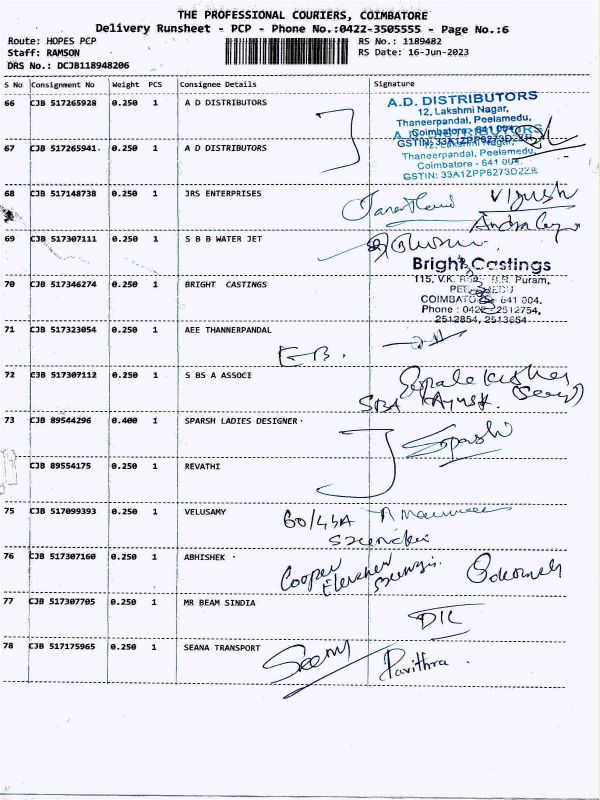 THE PROFESSIONAL COURIERS, COIMBATORE
Delivery Runsheet - PCP - Phone No.:0422-3505555 - Page No.:6
Route: HOPES PCP RS No.: 1189482
Staff: RAMSON RS Date: 16-Jun-2023
DRS No.: DCJB118948206
S No Consignment No Weight PCS Consignee Details Signature
66 CJB 517265928 0.250 1 A D DISTRIBUTORS
A.D. DISTRIBUTORS
12, Lakshmi Nagar,
Thaneerpandal, Peelamedu,
Coimbatore - 641 004.
GSTIN: 33A1ZPP6273D2ZR
67 CJB 517265941 0.250 1 A D DISTRIBUTORS
A.D. DISTRIBUTORS
12, Lakshmi Nagar,
Thaneerpandal, Peelamedu,
Coimbatore - 641 004.
GSTIN: 33A1ZPP6273D2ZR
68 CJB 517148738 0.250 1 JRS ENTERPRISES
69 CJB 517307111 0.250 1 S B B WATER JET
70 CJB 517346274 0.250 1 BRIGHT CASTINGS
Bright Castings
115, V.K. B.R. Puram,
COIMBATORE 641 004.
Phone : 0422 - 2512754,
2512854, 2513654
71 CJB 517323054 0.250 1 AEE THANNERPANDAL
EB.
72 CJB 517307112 0.250 1 S BS A ASSOCI
SBA
73 CJB 89544296 0.400 1 SPARSH LADIES DESIGNER
CJB 89554175 0.250 1 REVATHI
75 CJB 517099393 0.250 1 VELUSAMY
60/43A
76 CJB 517307160 0.250 1 ABHISHEK
Cooper
77 CJB 517307705 0.250 1 MR BEAM SINDIA
78 CJB 517175965 0.250 1 SEANA TRANSPORT
Pavithra.